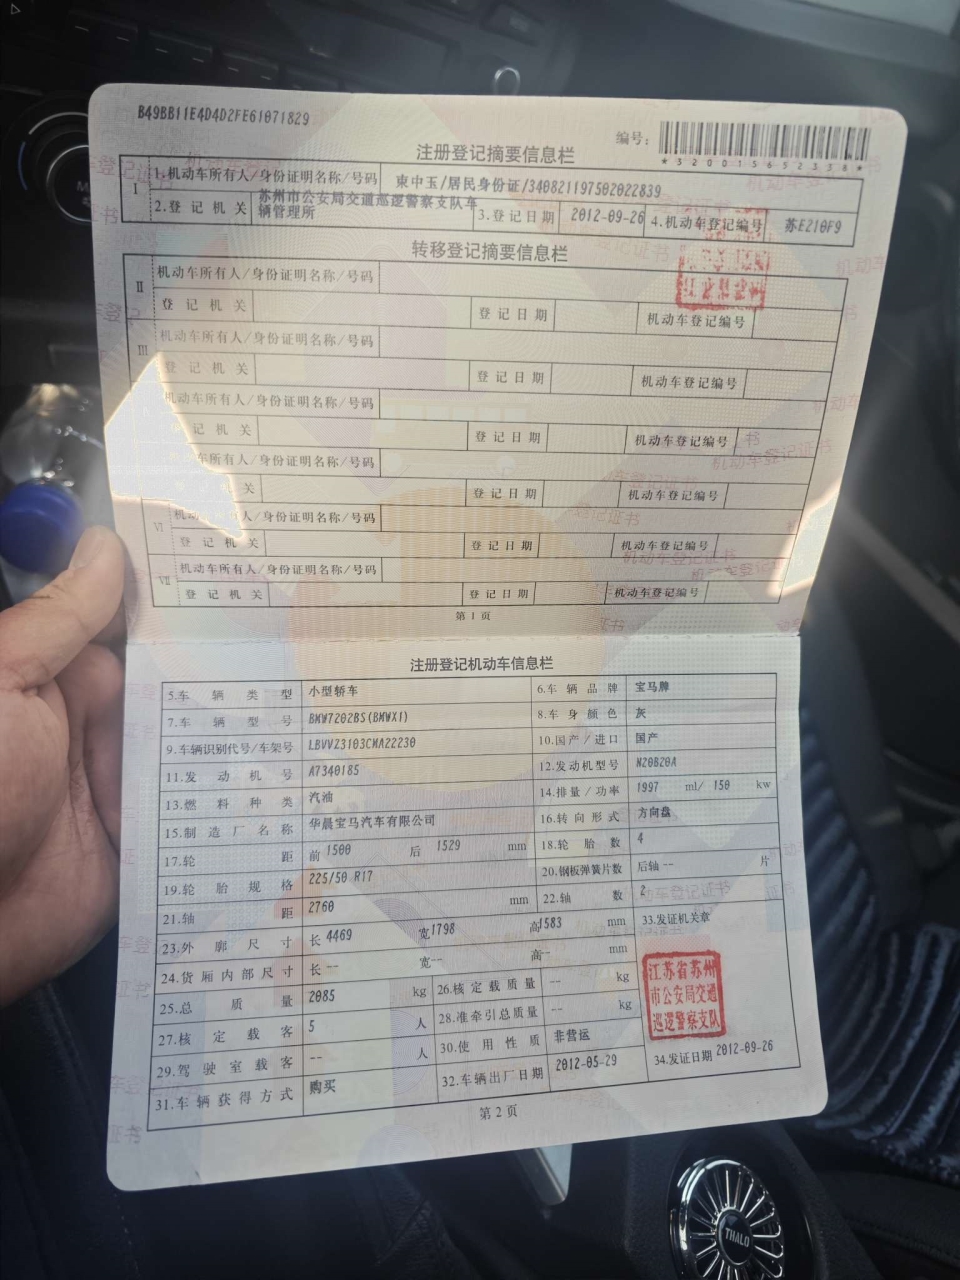 B49BB11E4D4D2FE61071829
编号:
*320015652336*
注册登记摘要信息栏
I 1.机动车所有人/身份证明名称/号码 東中玉/居民身份证/340821197502022839
2.登记机关 苏州市公安局交通巡逻警察支队车辆管理所 3.登记日期 2012-09-26 4.机动车登记编号 苏E210F9
转移登记摘要信息栏
II 机动车所有人/身份证明名称/号码
登记机关 登记日期 机动车登记编号
III 机动车所有人/身份证明名称/号码
登记机关 登记日期 机动车登记编号
机动车所有人/身份证明名称/号码
记机关 登记日期 机动车登记编号
车所有人/身份证明名称/号码
机关 登记日期 机动车登记编号
VI 机动车所有人/身份证明名称/号码
登记机关 登记日期 机动车登记编号
VII 机动车所有人/身份证明名称/号码
登记机关 登记日期 机动车登记编号
第1页
注册登记机动车信息栏
5.车辆类型 小型轿车 6.车辆品牌 宝马牌
7.车辆型号 BMW7202BS(BMWX1) 8.车身颜色 灰
9.车辆识别代号/车架号 LBVVZ3103CMA22230 10.国产/进口 国产
11.发动机号 A7340185 12.发动机型号 N20B20A
13.燃料种类 汽油 14.排量/功率 1997 ml/ 150 kw
15.制造厂名称 华晨宝马汽车有限公司 16.转向形式 方向盘
17.轮距 前 1500 后 1529 mm 18.轮胎数 4
19.轮胎规格 225/50 R17 20.钢板弹簧片数 后轴 -- 片
21.轴距 2760 mm 22.轴数 2
23.外廓尺寸 长 4469 宽 1798 高 1583 mm 33.发证机关章
24.货厢内部尺寸 长 -- 宽 -- 高 -- mm
25.总质量 2085 kg 26.核定载质量 -- kg
27.核定载客 5 人 28.准牵引总质量 -- kg
29.驾驶室载客 -- 人 30.使用性质 非营运
31.车辆获得方式 购买 32.车辆出厂日期 2012-05-29 34.发证日期 2012-09-26
江苏省苏州
市公安局交通
巡逻警察支队
第2页
THALO